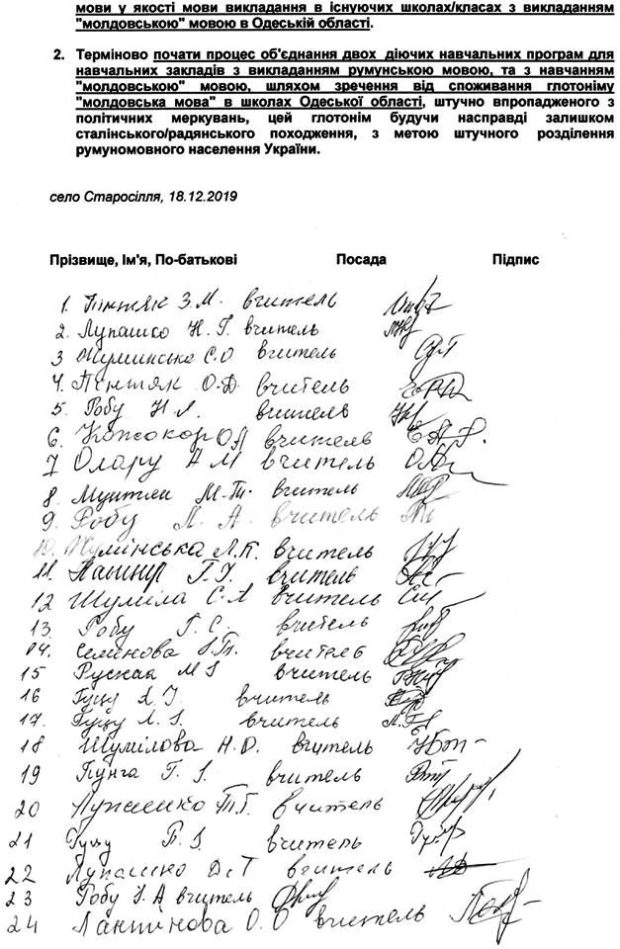 мови у якості мови викладання в існуючих школах/класах з викладанням
"молдовською" мовою в Одеській області.
2. Терміново почати процес об'єднання двох діючих навчальних програм для
навчальних закладів з викладанням румунською мовою, та з навчанням
"молдовською" мовою, шляхом зречення від споживання глотоніму
"молдовська мова" в школах Одеської області, штучно впропадженого з
політичних меркувань, цей глотонім будучи насправді залишком
сталінського/радянського походження, з метою штучного розділення
румуномовного населення України.
село Старосілля, 18.12.2019
Прізвище, Ім'я, По-батькові Посада Підпис
1. Пінтяк З.М. вчитель
2. Лупашко Н. Г. вчитель
3 С.О вчитель
4. Пентяк О.Д. вчитель
5. Робу Н.Я. вчитель
6. Кожокар О.Л вчитель
7 Олару А М вчитель
8. М.Т. вчитель
9. Робу Л. А. вчитель
10. Жумінська Л.П. вчитель
11. вчитель
12 Шуміла С.А вчитель
13. Робу Г. С. вчитель
14. Семенова вчитель
15 Руская М вчитель
16 Гуцу вчитель
17. Гуцу Л. вчитель
18 Шумілова Н.О. вчитель
19 Пунга Г. вчитель
20 Лупашко Т.Г. вчитель
21 Гуцу вчитель
22 Лупашко вчитель
23 Робу А вчитель
24 Лантінова О. О вчитель